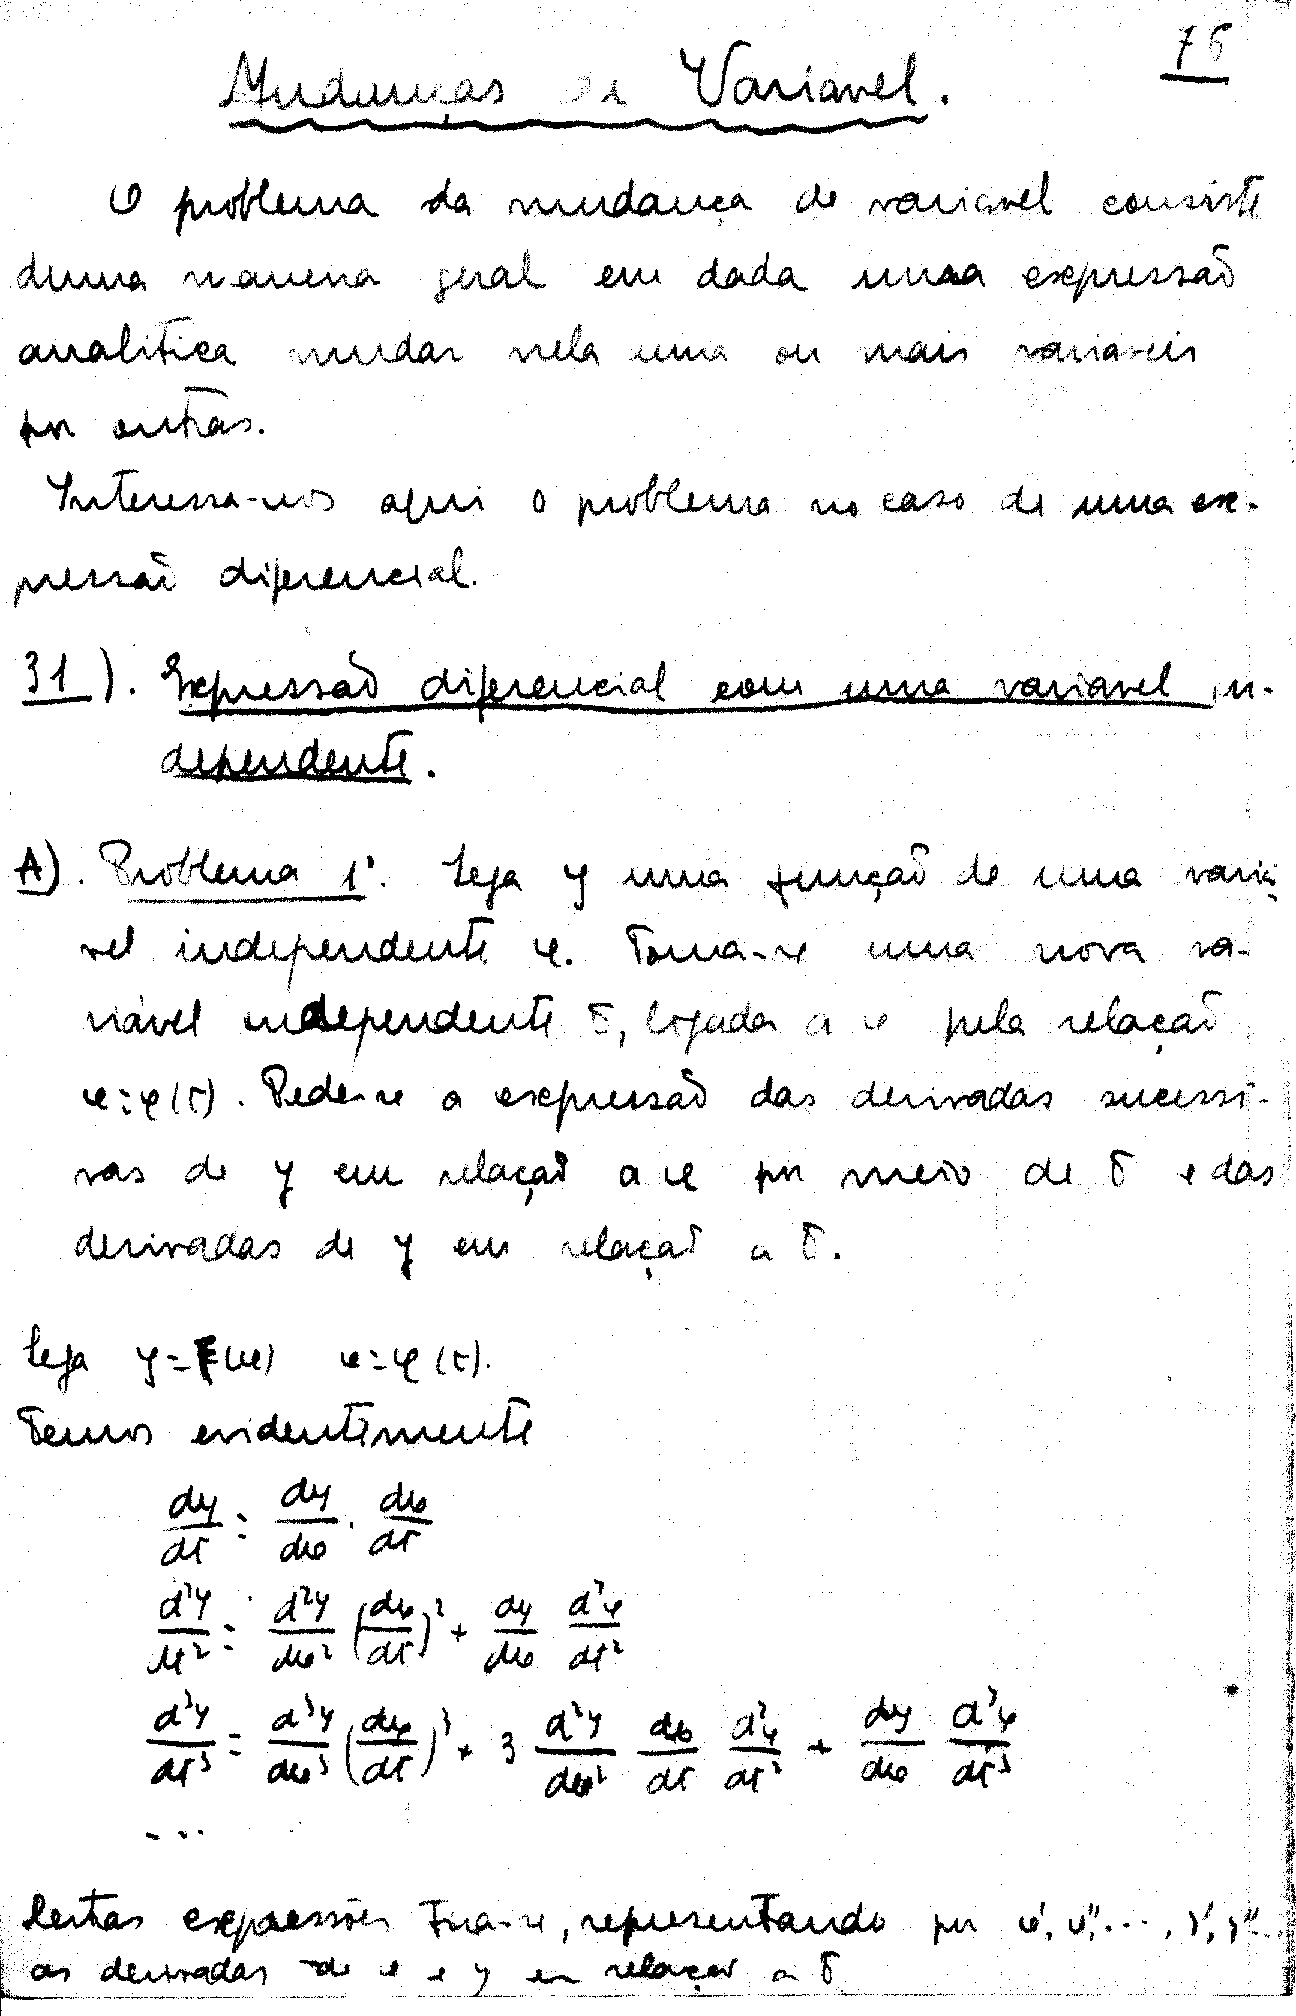 76
Mudanças de Variavel.
O problema da mudança de variavel consiste
duma maneira geral em dada uma expressão
analitica mudar nela uma ou mais variaveis
por outras.
Interessa-nos aqui o problema no caso de uma ex-
pressão diferencial.
31). Expressão diferencial com uma variavel in-
dependente.
A). Problema 1º. Seja y uma função de uma variá-
vel independente x. Toma-se uma nova va-
riável independente t, ligada a x pela relação
x=φ(t). Pede-se a expressão das derivadas sucessi-
vas de y em relação a x por meio de t e das
derivadas de y em relação a t.
Seja y=F(x) x=φ(t).
Temos evidentemente
dy/dt = dy/dx · dx/dt
d²y/dt² = d²y/dx² (dx/dt)² + dy/dx d²x/dt²
d³y/dt³ = d³y/dx³ (dx/dt)³ + 3 d²y/dx² dx/dt d²x/dt² + dy/dx d³x/dt³
...
Destas expressões tira-se, representando por x', x'', ..., y', y''...
as derivadas de x e y em relação a t